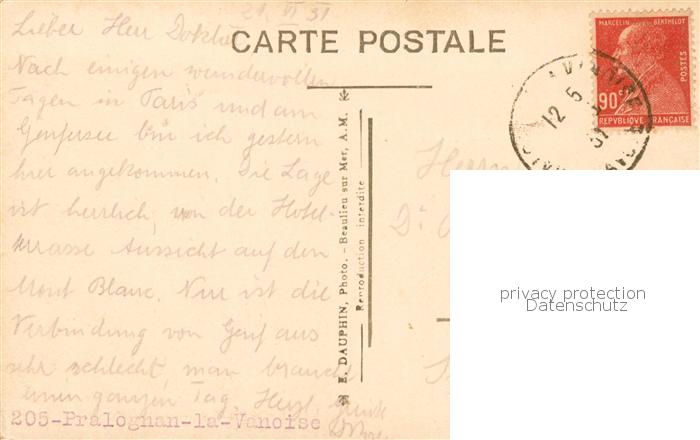 21. VI 31
Lieber Herr Doktor
CARTE POSTALE
Nach einigen wundervollen
Tagen in Paris und am
Genfersee bin ich gestern
hier angekommen. Die Lage
ist herrlich, von der Hotel-
terrasse Aussicht auf den
Mont Blanc. Nur ist die
Verbindung von Genf aus
sehr schlecht, man braucht
einen ganzen Tag. Herzl.
205-Pralognan-la-Vanoise
E. DAUPHIN, Photo. - Beaulieu sur Mer, A. M.
Reproduction interdite
MARCELIN BERTHELOT
POSTES
90c
REPVBLIQUE FRANÇAISE
12 5
Herrn
Dr
privacy protection
Datenschutz